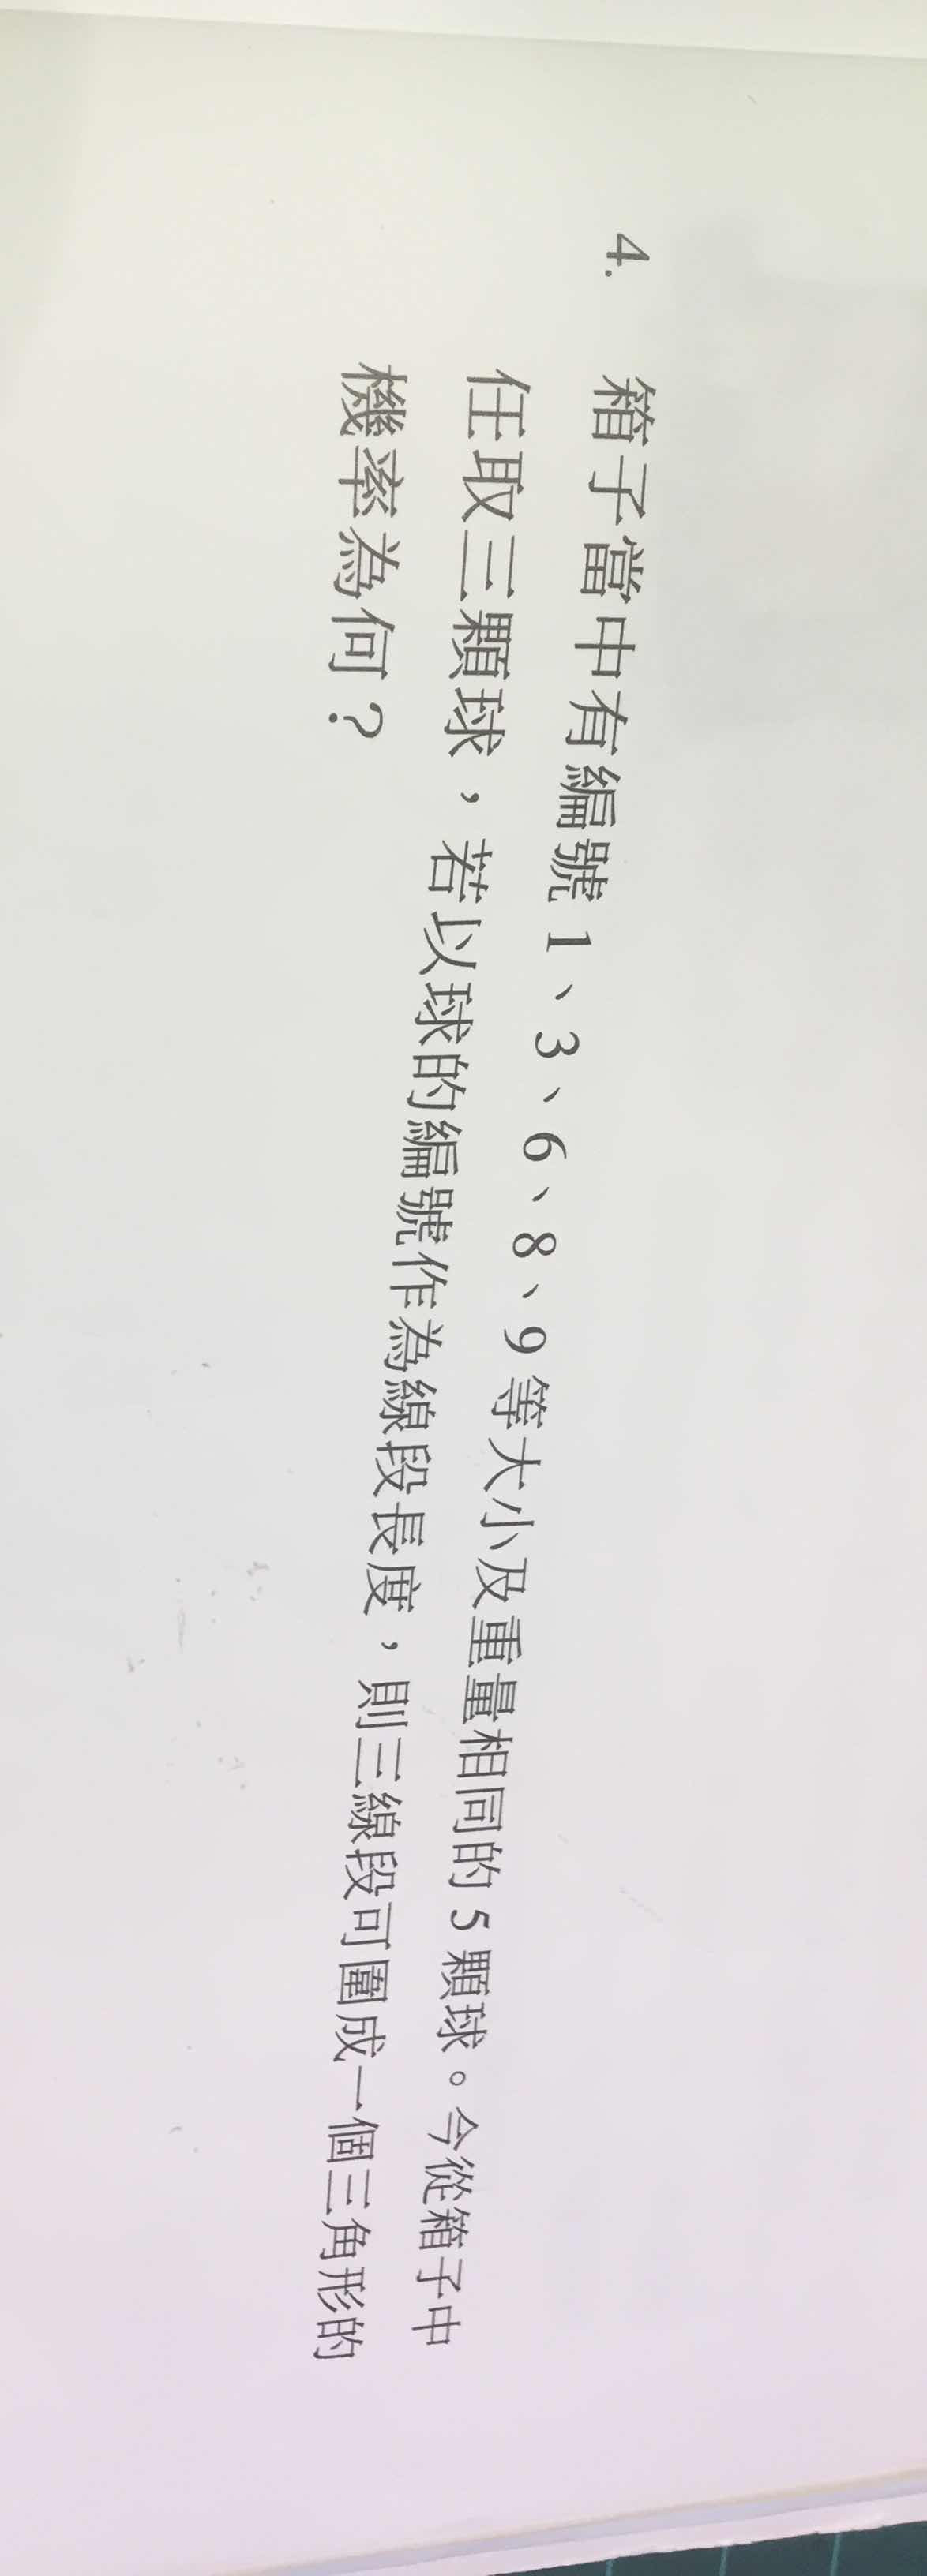 4. 箱子當中有編號 1、3、6、8、9 等大小及重量相同的 5 顆球。今從箱子中
任取三顆球，若以球的編號作為線段長度，則三線段可圍成一個三角形的
機率為何？